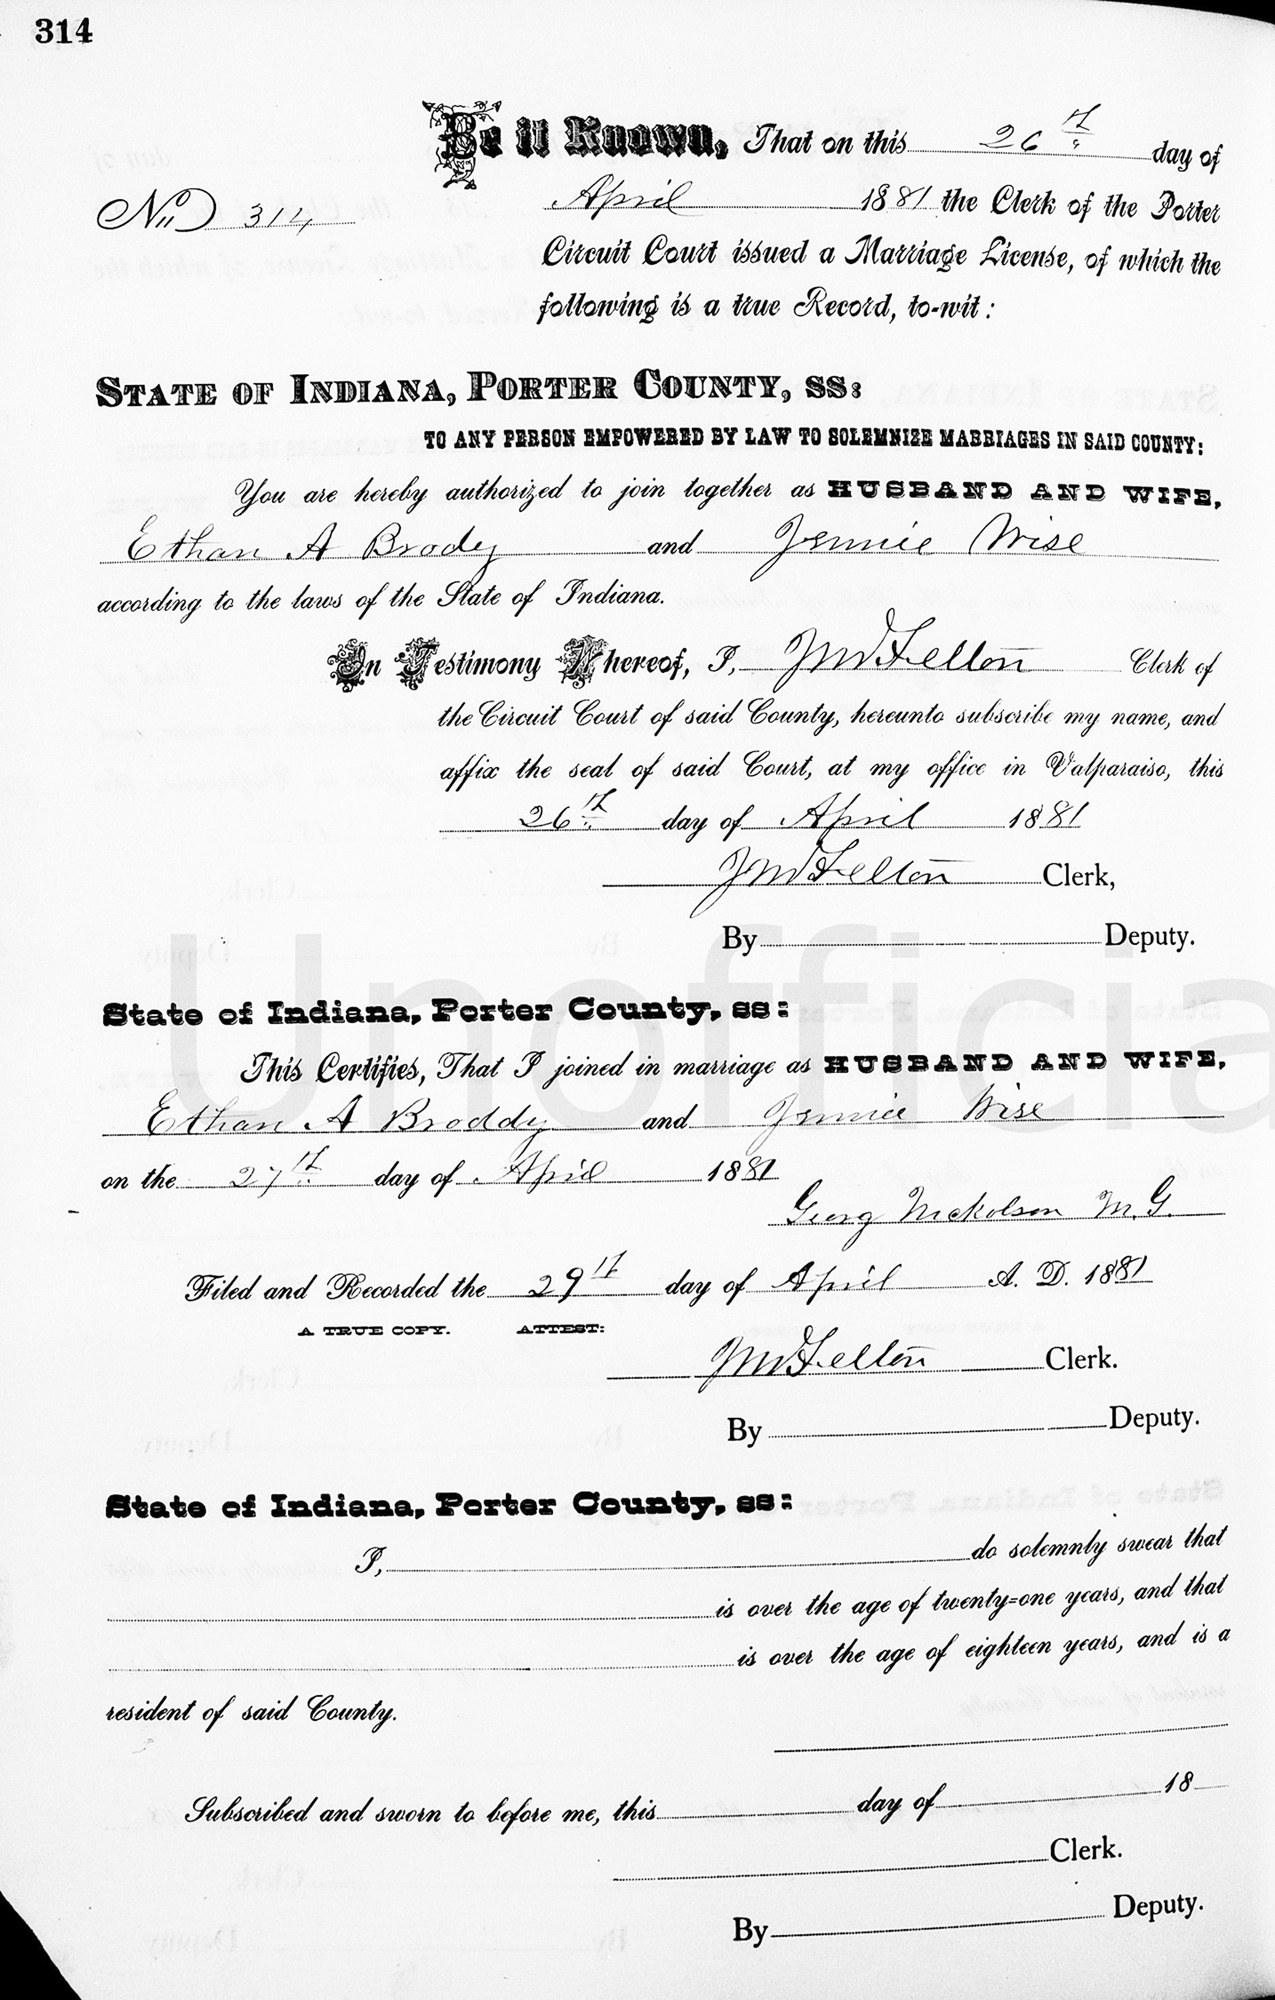 314
Be it Known, That on this 26th day of
No 314 April 1881 the Clerk of the Porter
Circuit Court issued a Marriage License, of which the
following is a true Record, to-wit:
STATE OF INDIANA, PORTER COUNTY, SS:
TO ANY PERSON EMPOWERED BY LAW TO SOLEMNIZE MARRIAGES IN SAID COUNTY:
You are hereby authorized to join together as HUSBAND AND WIFE,
Ethan A Brody and Jennie Wise
according to the laws of the State of Indiana.
In Testimony Whereof, I, JW Felton Clerk of
the Circuit Court of said County, hereunto subscribe my name, and
affix the seal of said Court, at my office in Valparaiso, this
26th day of April 1881
JW Felton Clerk,
By Deputy.
Unofficia
State of Indiana, Porter County, ss:
This Certifies, That I joined in marriage as HUSBAND AND WIFE,
Ethan A Broddy and Jennie Wise
on the 27th day of April 1881
Georg Nickolson M.G.
Filed and Recorded the 29th day of April A. D. 1881
A TRUE COPY. ATTEST:
JW Felton Clerk.
By Deputy.
State of Indiana, Porter County, ss:
I, do solemnly swear that
is over the age of twenty=one years, and that
is over the age of eighteen years, and is a
resident of said County.
Subscribed and sworn to before me, this day of 18
Clerk.
By Deputy.